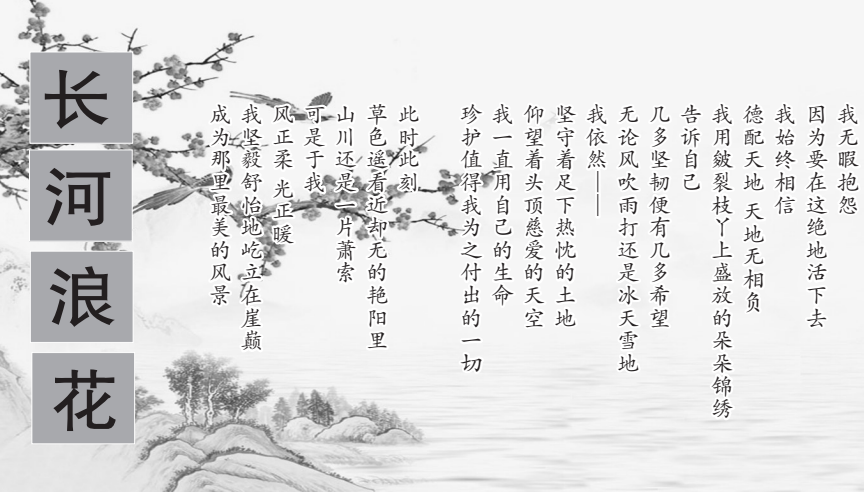 我无暇抱怨
因为要在这绝地活下去
我始终相信
德配天地 天地无相负
我用皴裂枝丫上盛放的朵朵锦绣
告诉自己
几多坚韧便有几多希望
无论风吹雨打还是冰天雪地
我依然——
坚守着足下热忱的土地
仰望着头顶慈爱的天空
我一直用自己的生命
珍护值得我为之付出的一切
此时此刻
草色遥看近却无的艳阳里
山川还是一片萧索
可是于我
风正柔 光正暖
我坚毅舒怡地屹立在崖巅
成为那里最美的风景
长河浪花